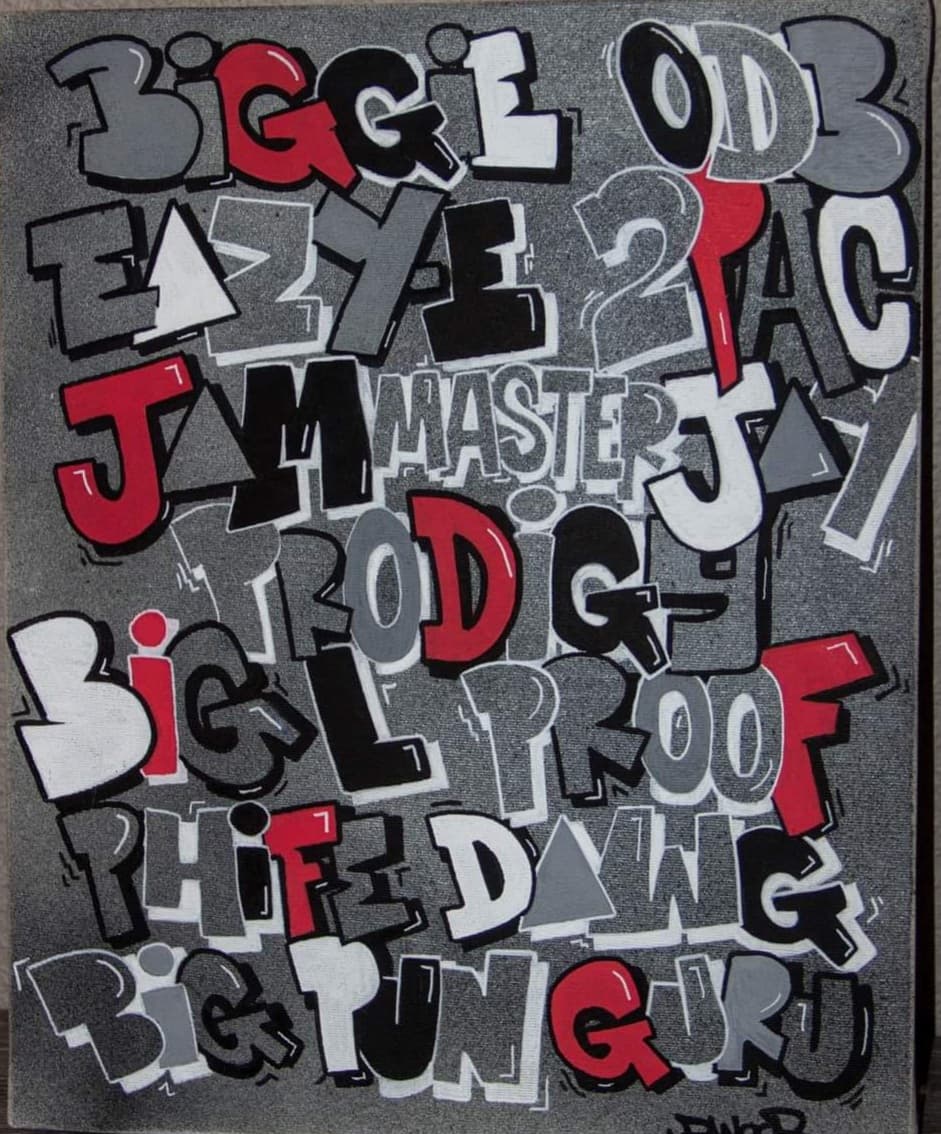 BiGGiE ODB
EAZY-E 2PAC
JAM MASTER JAY
PRODiGY
BiG L PROOF
PHiFE DAWG
BiG PUN GURU